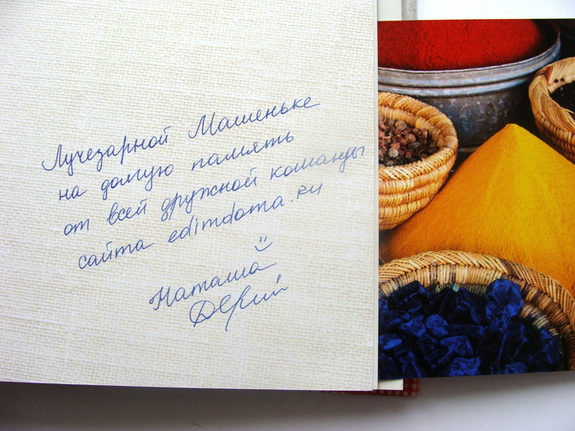 Лучезарной Машеньке
на долгую память
от всей дружной команды
сайта edimdoma.ru
Наташа